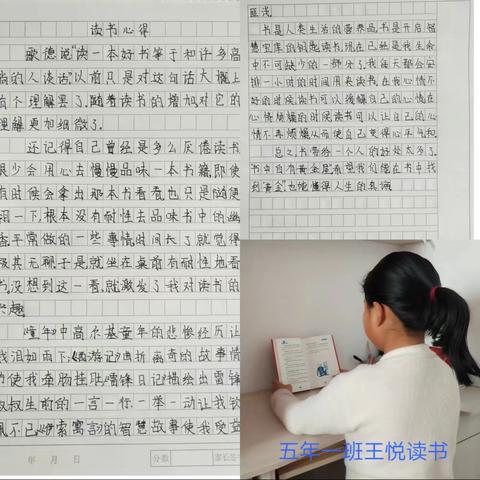 读书心得
歌德说"读一本好书等于和许多高
尚的人谈话"以前只是对这句话大概上
有个理解罢了。随着读书的增加对它的
理解更加细微了。
还记得自己曾经是多么厌倦读书
很少会用心去慢慢品味一本书籍,即使
有时候会拿出那本书看看也只是随便
翻一下,根本没有耐性去品味书中的幽
香平常做的一些事情时间长了就觉得
极其无聊于是就坐在桌前有耐性地看
书,没想到这一看,就激发了我对读书的
兴趣
《童年》中高尔基童年的悲惨经历让
我泪如雨下;《西游记》曲折离奇的故事情
节使我牵肠挂肚《雷锋日记》描绘出雷锋
叔叔生前的一言一行一举一动让我钦
佩不已《伊索寓言》的智慧故事使我受益
年 月 日
分数
家长签
匪浅
书是人类生活的营养品,书是开启智
慧宝库的钥匙读书,现在已然是我生命
中不可缺少的一部分了,我每天都会安
排一小时的时间用来读书,在我心情不
好的时候,读书可以缓解自己的心情在
心情烦躁的时候读书可以让自己的心
情不再烦躁从而使自己变得心平气和
总之,书带给一个人的好处太多了,
书中自有黄金屋"希望我们能在书中找
到"黄金",也能懂得人生的真谛
五年一班王悦读书